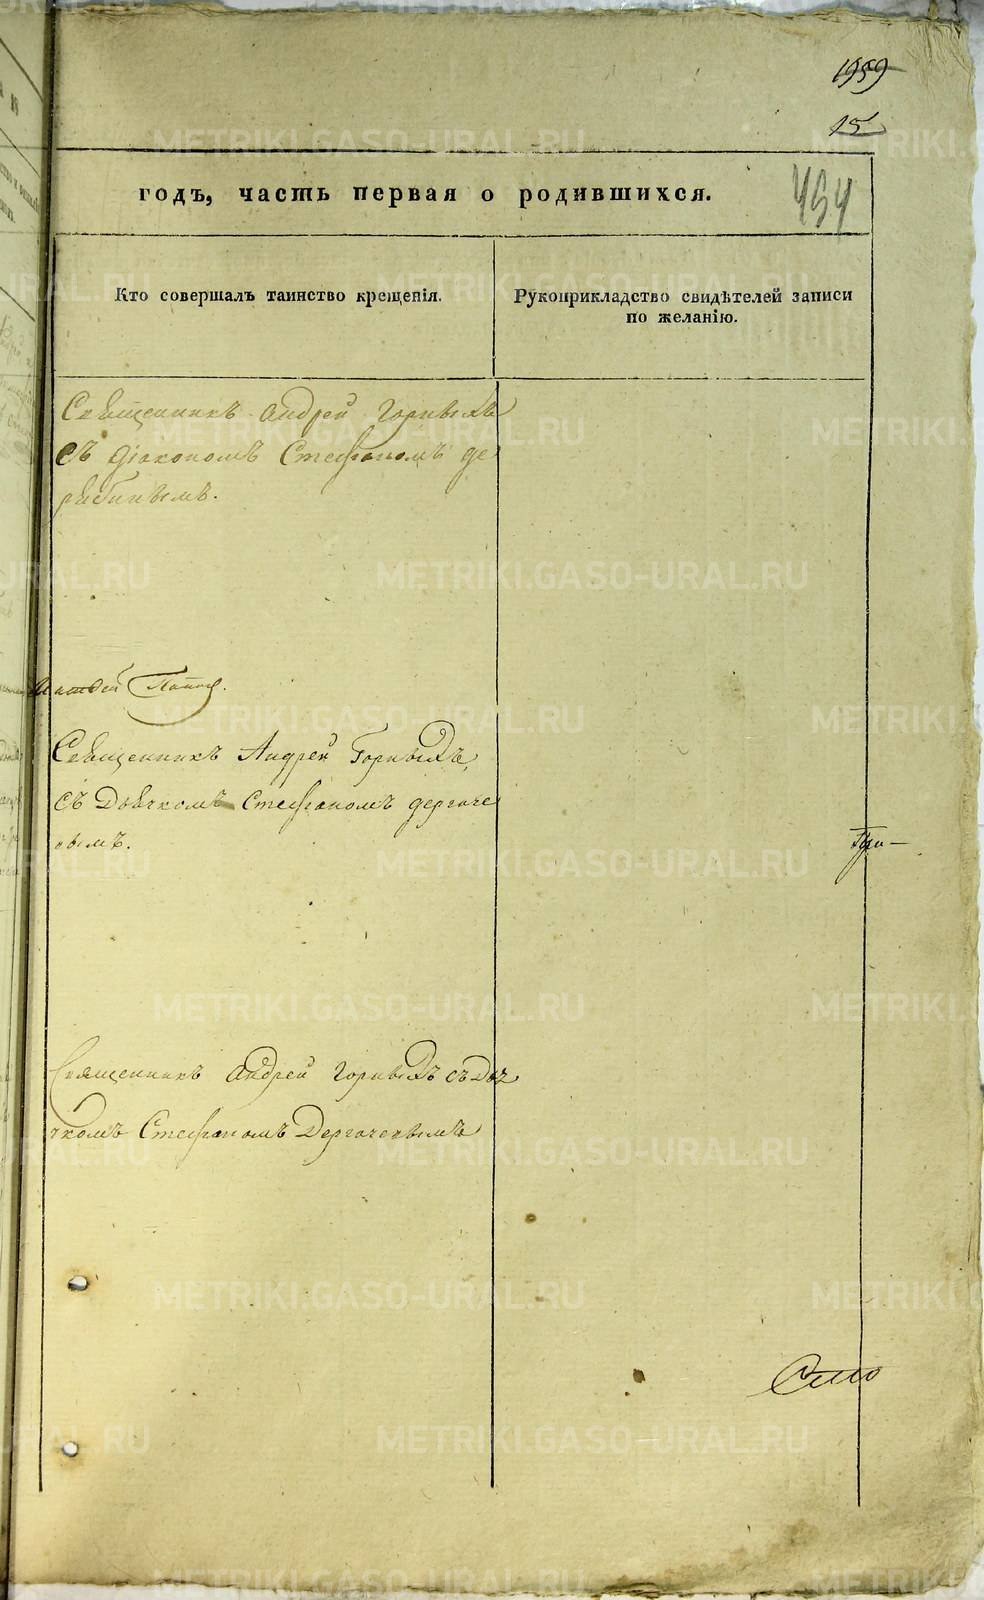 1959
15
454
годъ, часть первая о родившихся.
Кто совершалъ таинство крещенія.
Рукоприкладство свидѣтелей записи
по желанію.
Священникъ Андрей Горныхъ
съ діакономъ Стефаномъ де
рябинымъ.
Священникъ Андрей Горныхъ,
съ Дьячкомъ Стефаномъ дергаче
вымъ.
Священникъ Андрей Горныхъ съ Дья
чкомъ Стефаномъ Дергачевымъ
METRIKI.GASO-URAL.RU